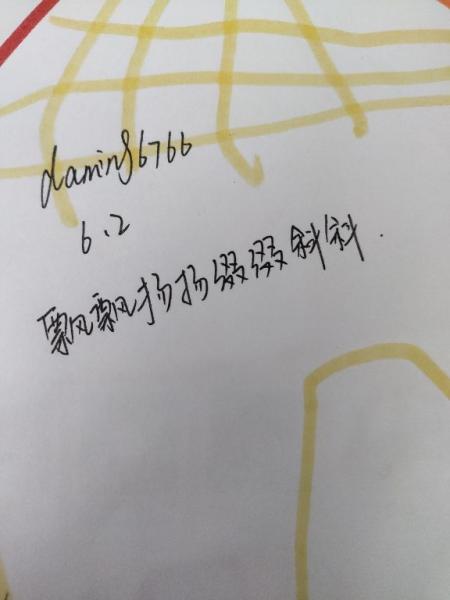 daming6766
6.2
飘飘扬扬缀缀斜斜.